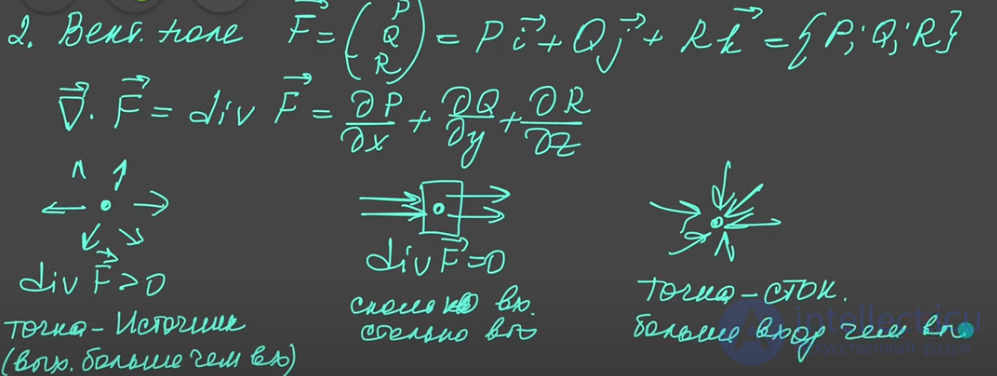 2. Вект. поле F⃗ = (P Q R) = P i⃗ + Q j⃗ + R k⃗ = {P; Q; R}
∇⃗ · F⃗ = div F⃗ = ∂P/∂x + ∂Q/∂y + ∂R/∂z
div F⃗ > 0
точка - Источник
(вых. больше чем вх)
div F⃗ = 0
сколько вх.
столько вых
точка - сток.
больше вход чем вы